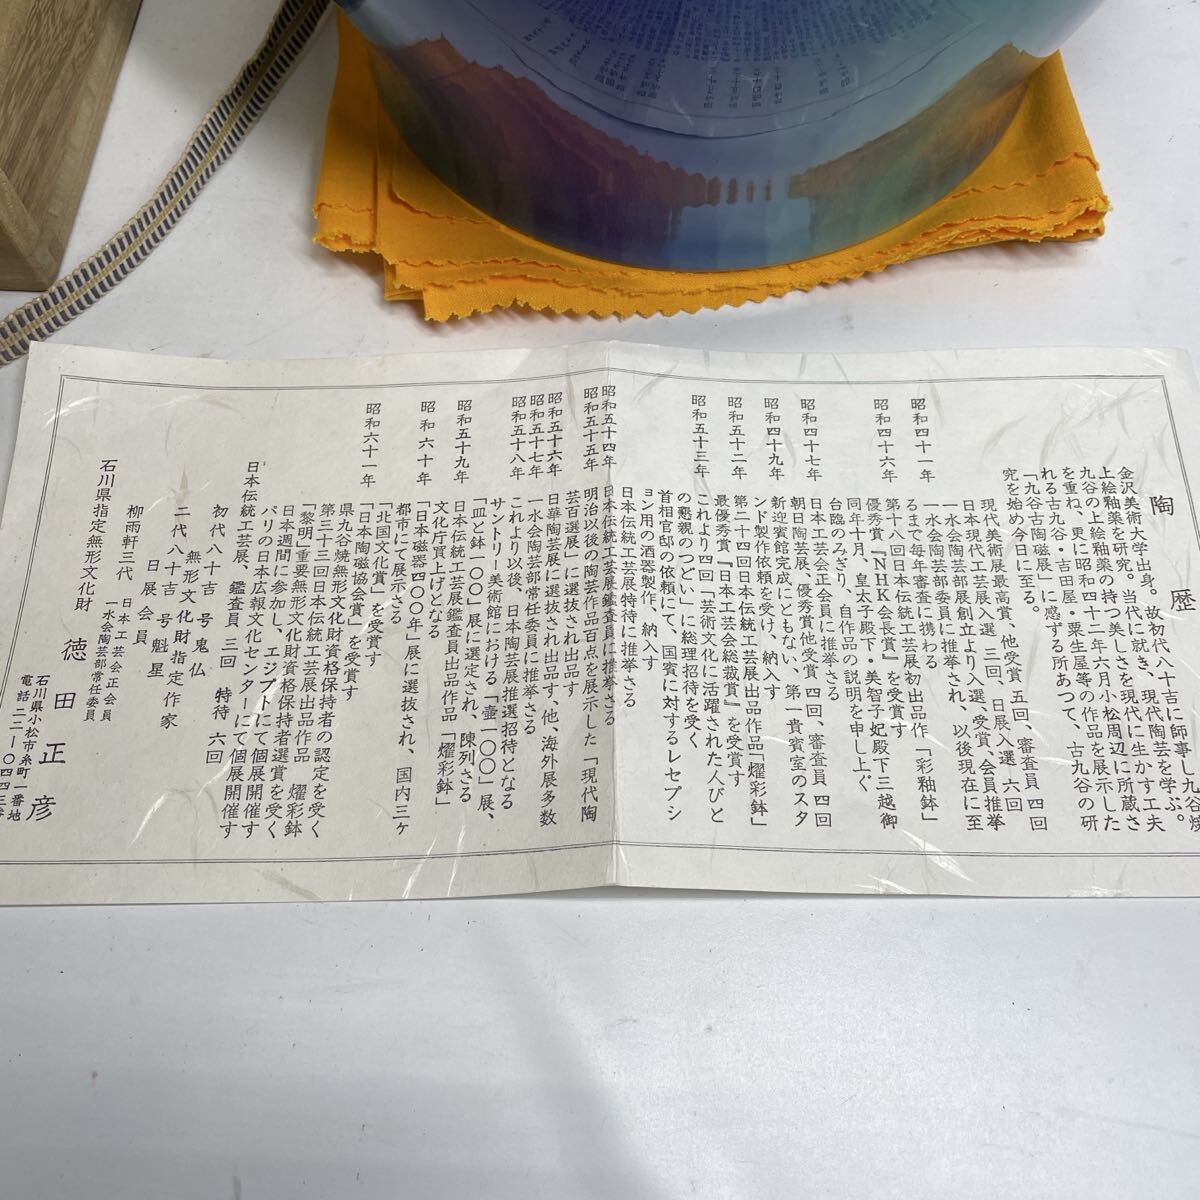 陶歴
金沢美術大学出身。故初代八十吉に師事し九谷焼
上絵釉薬を研究。当代に就き、現代陶芸を学ぶ。
九谷の上絵釉薬の持つ美しさを現代に生かす工夫
を重ね、更に昭和四十二年六月小松周辺に所蔵さ
れる古九谷・吉田屋・粟生屋等の作品を展示した
「九谷古陶磁展」に感ずる所あつて、古九谷の研
究を始め今日に至る。
現代美術展最高賞、他受賞 五回、審査員 四回
日本現代工芸展入選 三回、日展入選 六回
昭和四十一年 一水会陶芸部展創立より入選、受賞、会員推挙
一水会陶芸部審査員に推挙され、以後現在に至
るまで毎年審査に携わる
昭和四十六年 第十八回日本伝統工芸展初出品作「彩釉鉢」
優秀賞『NHK会長賞』を受賞す
同年十月、皇太子殿下・美智子妃殿下三越御
台臨のみぎり、自作品の説明を申し上ぐ
日本工芸会正会員に推挙さる
昭和四十七年 朝日陶芸展、優秀賞他受賞 四回、審査員 四回
昭和四十九年 新迎賓館完成にともない、第一貴賓室のスタ
ンド製作依頼を受け、納入す
昭和五十二年 第二十四回日本伝統工芸展出品作「燿彩鉢」
最優秀賞『日本工芸会総裁賞』を受賞す
昭和五十三年 これより四回「芸術文化に活躍された人びと
の懇親のつどい」に総理招待を受く
首相官邸の依頼にて、国賓に対するレセプシ
ョン用の酒器製作、納入す
日本伝統工芸展特待に推挙さる
昭和五十四年 日本伝統工芸展鑑査員に推挙さる
昭和五十五年 明治以後の陶芸作品百点を展示した「現代陶
芸百選展」に選抜され出品す
昭和五十六年 日華陶芸展に選抜され出品す、他、海外展多数
昭和五十七年 一水会陶芸部常任委員に推挙さる
昭和五十八年 これより以後、日本陶芸展推選招待となる
サントリー美術館における「壷一〇〇」展、
「皿と鉢一〇〇」展に選定され、陳列さる
昭和五十九年 日本伝統工芸展鑑査員出品作品「燿彩鉢」
文化庁買上げとなる
昭和六十年 「日本磁器四〇〇年」展に選抜され、国内三ヶ
都市にて展示さる
「北国文化賞」を受賞す
昭和六十一年 「日本陶磁協会賞」を受賞す
県九谷焼無形文化財資格保持者の認定を受く
第三十三回日本伝統工芸展出品作品 燿彩鉢
「黎明」重要無形文化財資格保持者選賞を受く
日本週間に参加し、エジプトにて個展開催す
パリの日本広報文化センターにて個展開催す
日本伝統工芸展、鑑査員 三回 特待 六回
初代八十吉 号鬼仏
無形文化財指定作家
二代八十吉 号魁星
日展会員
柳雨軒三代 日本工芸会正会員
一水会陶芸部常任委員
石川県指定無形文化財 徳田正彦
石川県小松市糸町一番地